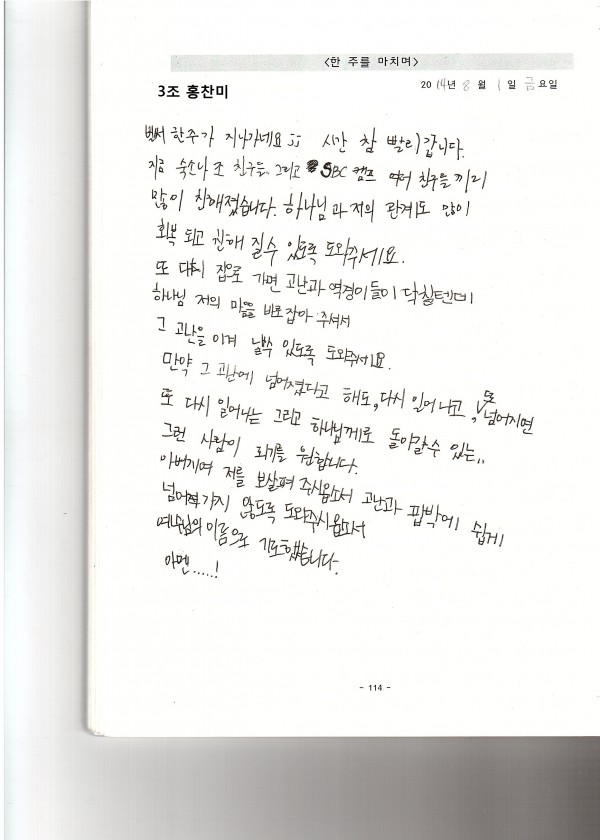 <한 주를 마치며>
3조 홍찬미
2014년 8월 1일 금요일
벌써 한주가 지나가네요 ;; 시간 참 빨리 갑니다.
지금 숙소나 조 친구들, 그리고 SBC 캠프 여러 친구들 끼리
많이 친해졌습니다. 하나님과 저의 관계도 많이
회복 되고 친해 질수 있도록 도와주세요.
또 다시 집으로 가면 고난과 역경이들이 닥칠텐데
하나님 저의 마음을 바로잡아 주셔서
그 고난을 이겨 낼수 있도록 도와주세요.
만약 그 고난에 넘어졌다고 해도, 다시 일어나고, 또 넘어지면
또 다시 일어나는 그리고 하나님께로 돌아갈수 있는..
그런 사람이 되기를 원합니다.
아버지여 저를 보살펴 주시옵소서 고난과 핍박에 쉽게
넘어져가지 않도록 도와주시옵소서
예수님의 이름으로 기도했습니다.
아멘.....!
- 114 -